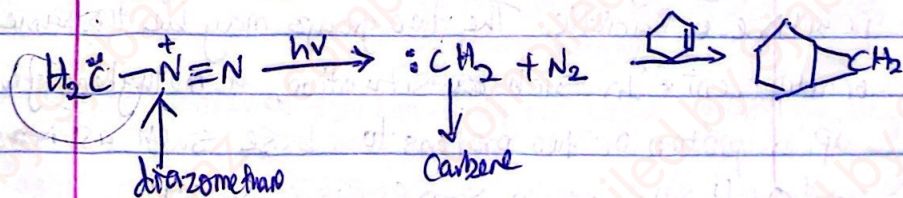 H₂C̈—N⁺≡N —hν→ :CH₂ + N₂ → CH₂
diazomethano Carbene